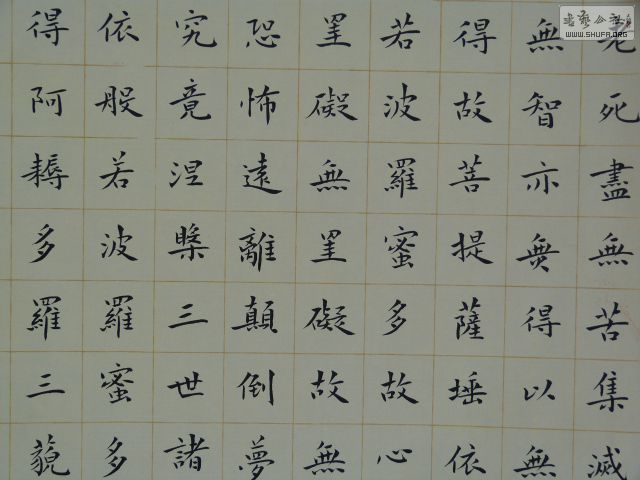 老死盡無苦集滅
無智亦無得以無
得故菩提薩埵依
若波羅蜜多故心
罣礙無罣礙故無
恐怖遠離顛倒夢
究竟涅槃三世諸
依般若波羅蜜多
得阿耨多羅三藐
WWW.SHUFA.ORG